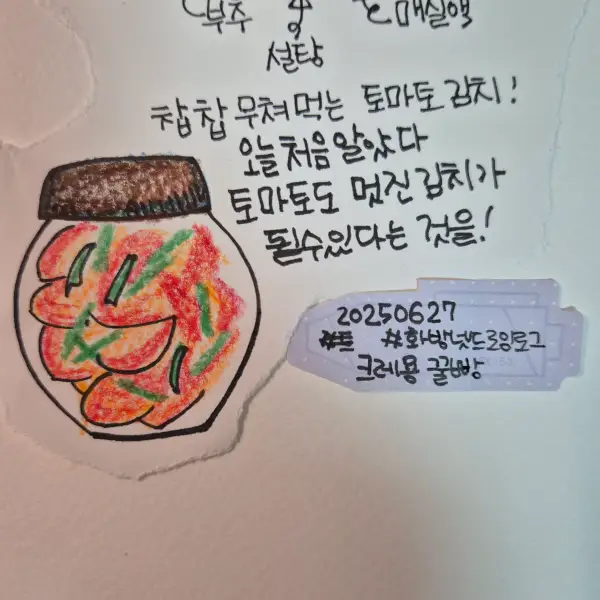 부추 매실액
설탕
찹찹 무쳐먹는 토마토김치!
오늘 처음 알았다
토마토도 멋진 김치가
될수있다는 것을!
20250627
#화방넷드로잉로그
크레용 꿀빵